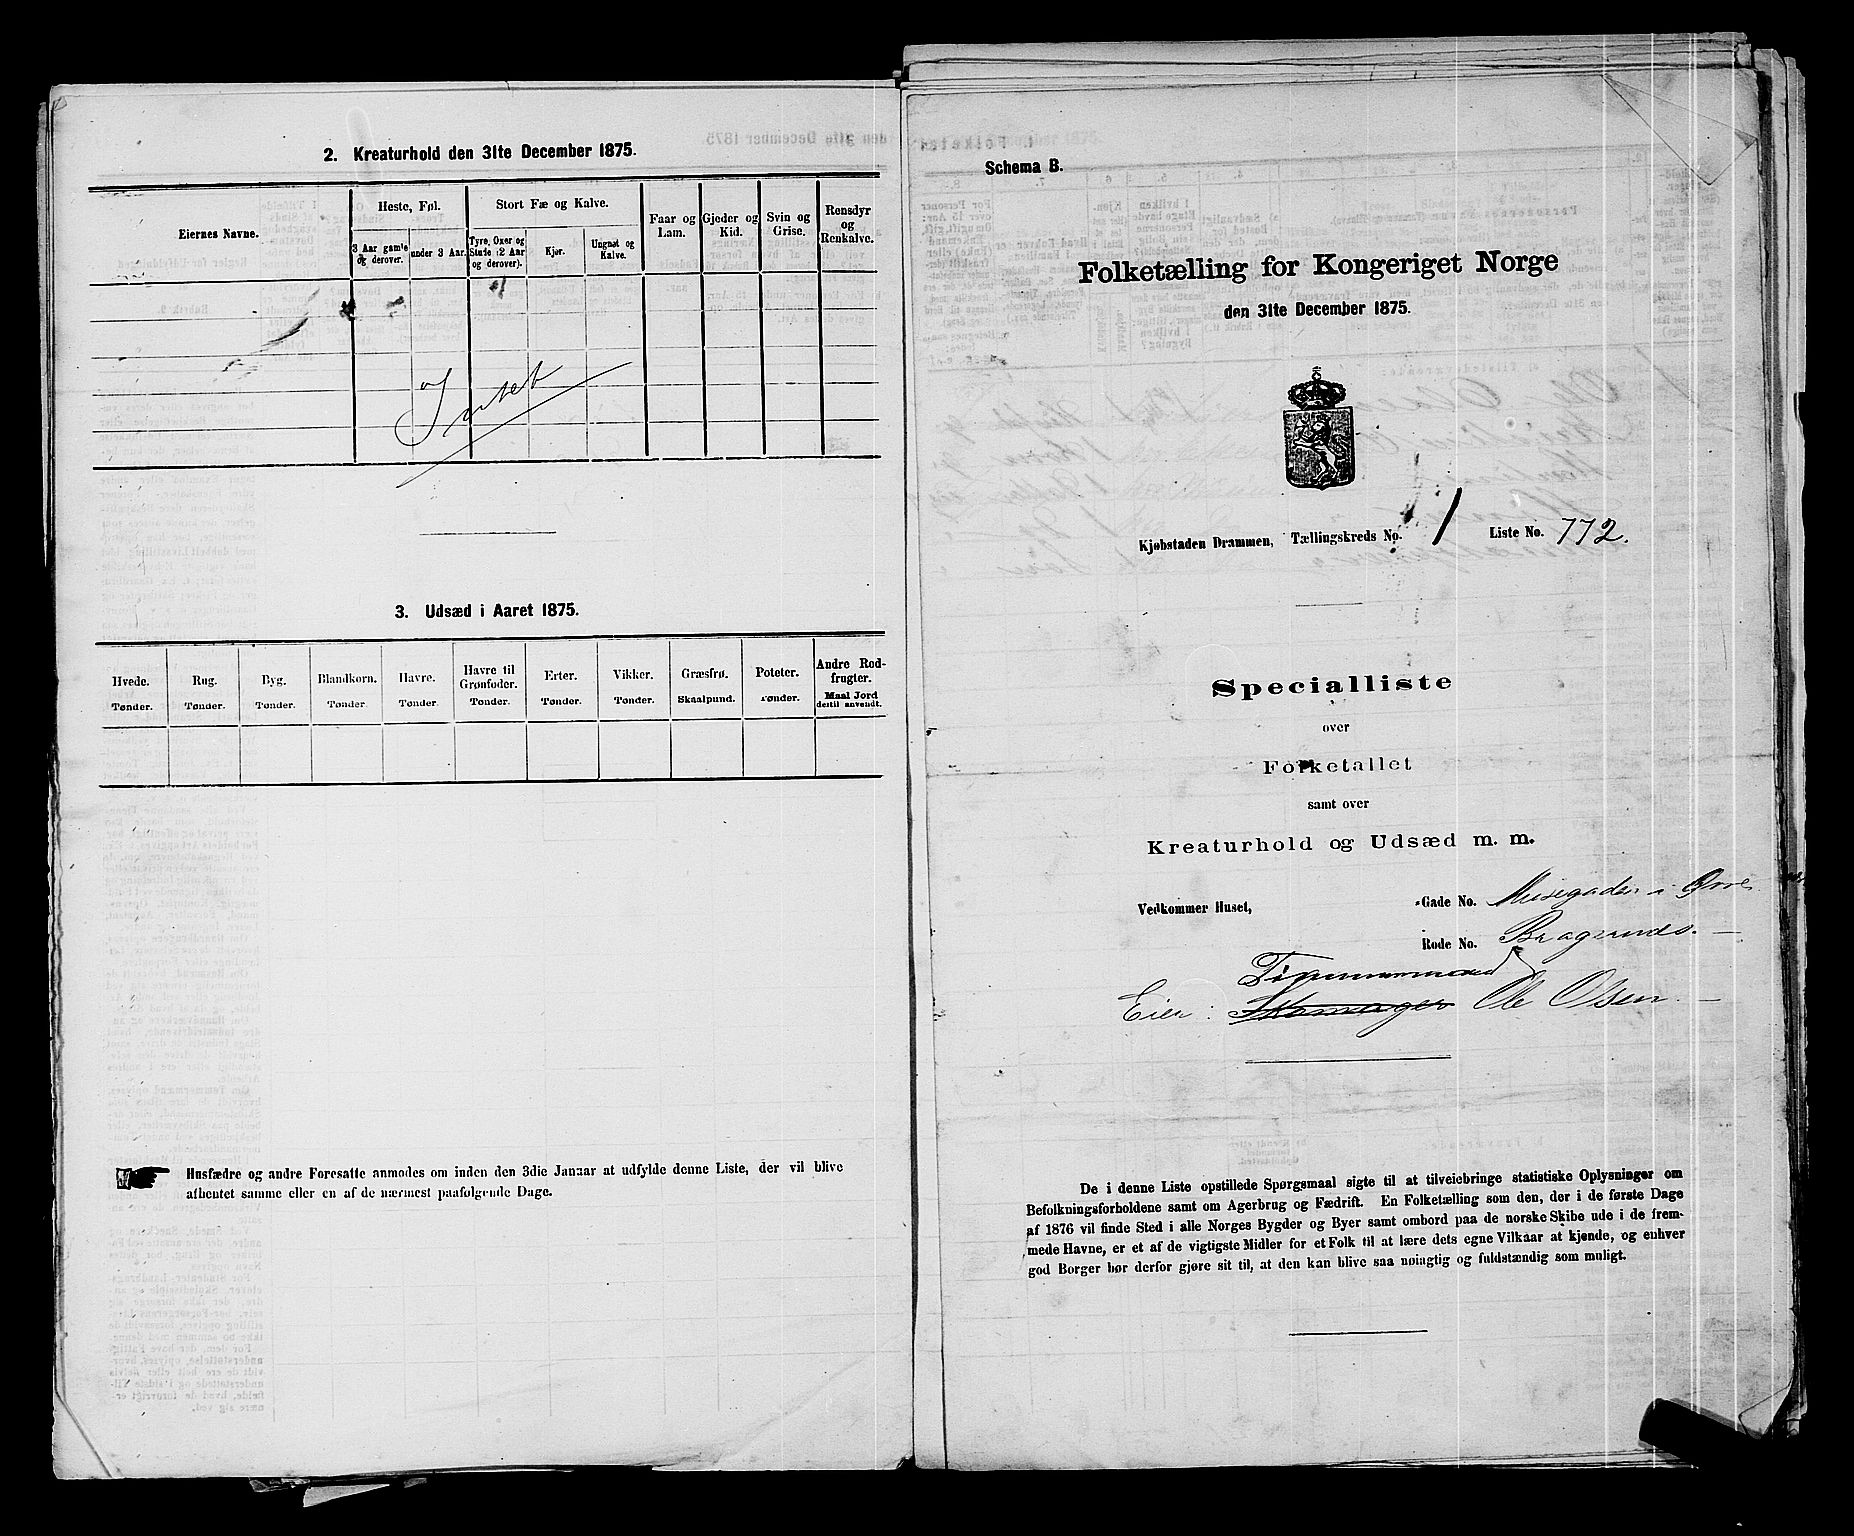 2. Kreaturhold den 31te December 1875.
Eiernes Navne.
Heste, Føl.
3 Aar gamle og derover.
under 3 Aar.
Stort Fæ og Kalve.
Tyre, Oxer og Stude (2 Aar og derover).
Kjør.
Ungnøt og Kalve.
Faar og Lam.
Gjeder og Kid.
Svin og Grise.
Rensdyr og Renkalve.
Intet
3. Udsæd i Aaret 1875.
Hvede. Rug. Byg. Blandkorn. Havre. Havre til Grønfoder. Erter. Vikker. Græsfrø. Poteter. Andre Rodfrugter.
Tønder. Tønder. Tønder. Tønder. Tønder. Tønder. Tønder. Tønder. Skaalpund. Tønder. Maal Jord dertil anvendt.
Husfædre og andre Foresatte anmodes om inden den 3die Januar at udfylde denne Liste, der vil blive
afhentet samme eller en af de nærmest paafølgende Dage.
Schema B.
Folketælling for Kongeriget Norge
den 31te December 1875.
Kjøbstaden Drammen, Tællingskreds No. 1 Liste No. 772.
Specialliste
over
Folketallet
samt over
Kreaturhold og Udsæd m. m.
Vedkommer Huset, Gade No. Musegaden i Øvre
Rode No. Bragernes.
Tømmermand
Eier: Skomager Ole Olsen.
De i denne Liste opstillede Spørgsmaal sigte til at tilveiebringe statistiske Oplysninger om
Befolkningsforholdene samt om Agerbrug og Fædrift. En Folketælling som den, der i de første Dage
af 1876 vil finde Sted i alle Norges Bygder og Byer samt ombord paa de norske Skibe ude i de frem-
mede Havne, er et af de vigtigste Midler for et Folk til at lære dets egne Vilkaar at kjende, og enhver
god Borger bør derfor gjøre sit til, at den kan blive saa nøiagtig og fuldstændig som muligt.